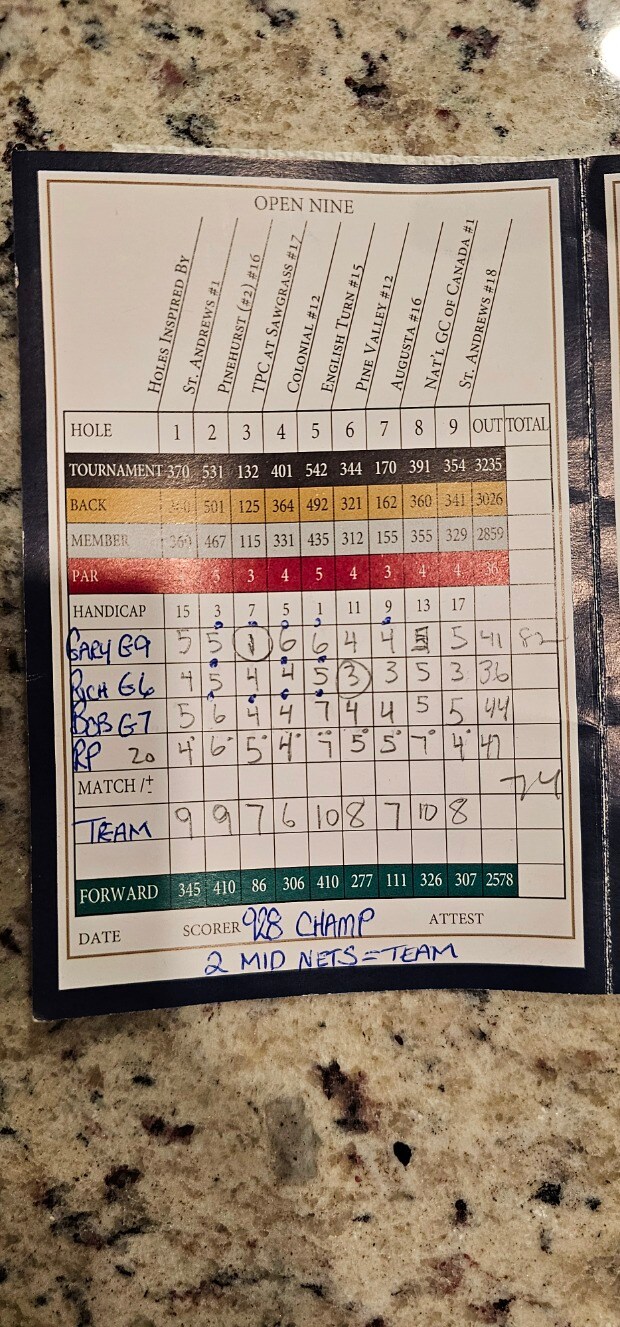 OPEN NINE
HOLES INSPIRED BY
ST. ANDREWS #1
PINEHURST (#2) #16
TPC AT SAWGRASS #17
COLONIAL #12
ENGLISH TURN #15
PINE VALLEY #12
AUGUSTA #16
NAT'L GC OF CANADA #1
ST. ANDREWS #18
HOLE 1 2 3 4 5 6 7 8 9 OUT TOTAL
TOURNAMENT 370 531 132 401 542 344 170 391 354 3235
BACK 501 125 364 492 321 162 360 341 3026
MEMBER 369 467 115 331 435 312 155 355 329 2859
PAR 5 3 4 5 4 3 4 4 36
HANDICAP 15 3 7 5 1 11 9 13 17
GARY G9 5 5 1 6 6 4 4 5 5 41 82
RICH G6 4 5 4 4 5 3 3 5 3 36
BOB G7 5 6 4 4 7 4 4 5 5 44
RP 20 4 6 5 4 7 5 5 7 4 47
MATCH /± 74
TEAM 9 9 7 6 10 8 7 10 8
FORWARD 345 410 86 306 410 277 111 326 307 2578
DATE SCORER 928 CHAMP ATTEST
2 MID NETS = TEAM